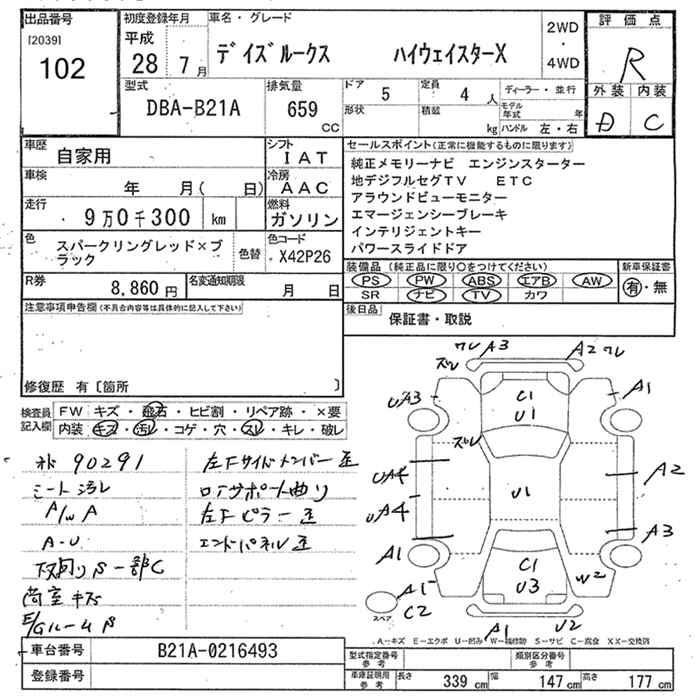 出品番号
[2039]
102
初度登録年月
平成
28 7月
車名・グレード
デイズルークス ハイウェイスターX
2WD
・
4WD
評価点
R
外装 内装
D C
型式
DBA-B21A
排気量
659
cc
ドア 5
定員 4 人
形状
積載 kg
ディーラー・並行
モデル年式 年
ハンドル 左・右
車歴
自家用
シフト
IAT
車検
年 月( 日)
冷房
AAC
走行
9万0千300 km
燃料
ガソリン
色
スパークリングレッド×ブラック
色替
色コード
X42P26
R券
8,860円
名変通知期限
月 日
セールスポイント(正常に機能するものに限ります)
純正メモリーナビ エンジンスターター
地デジフルセグTV ETC
アラウンドビューモニター
エマージェンシーブレーキ
インテリジェントキー
パワースライドドア
装備品(純正品に限り○をつけてください)
PS PW ABS エアB AW
SR ナビ TV カワ
新車保証書
有・無
後日品
保証書・取説
注意事項申告欄(不具合内容等は具体的に記入して下さい)
修復歴 有〔箇所 〕
検査員記入欄
FW キズ・飛石・ヒビ割・リペア跡・×要
内装 キズ・汚レ・コゲ・穴・スレ・キレ・破レ
90291
シート汚レ
A/W A
A-U
荷室キズ
E/Gルーム
左Fサイドメンバー歪
ロアサポート曲り
左Fピラー歪
エンドパネル歪
ワレ A3
A2 ワレ
スレ
UA3
A1
C1
U1
スレ
UA4
UA4
U1
A2
A3
A1
C1
U3
W2
A1
C2
スペア
A1
U2
A-キズ E-エクボ U-凹み W-補修跡 S-サビ C-腐食 XX-交換済
車台番号
B21A-0216493
登録番号
型式指定番号
参考
類別区分番号
参考
車庫証明用
参考
長さ 339 cm
幅 147 cm
高さ 177 cm